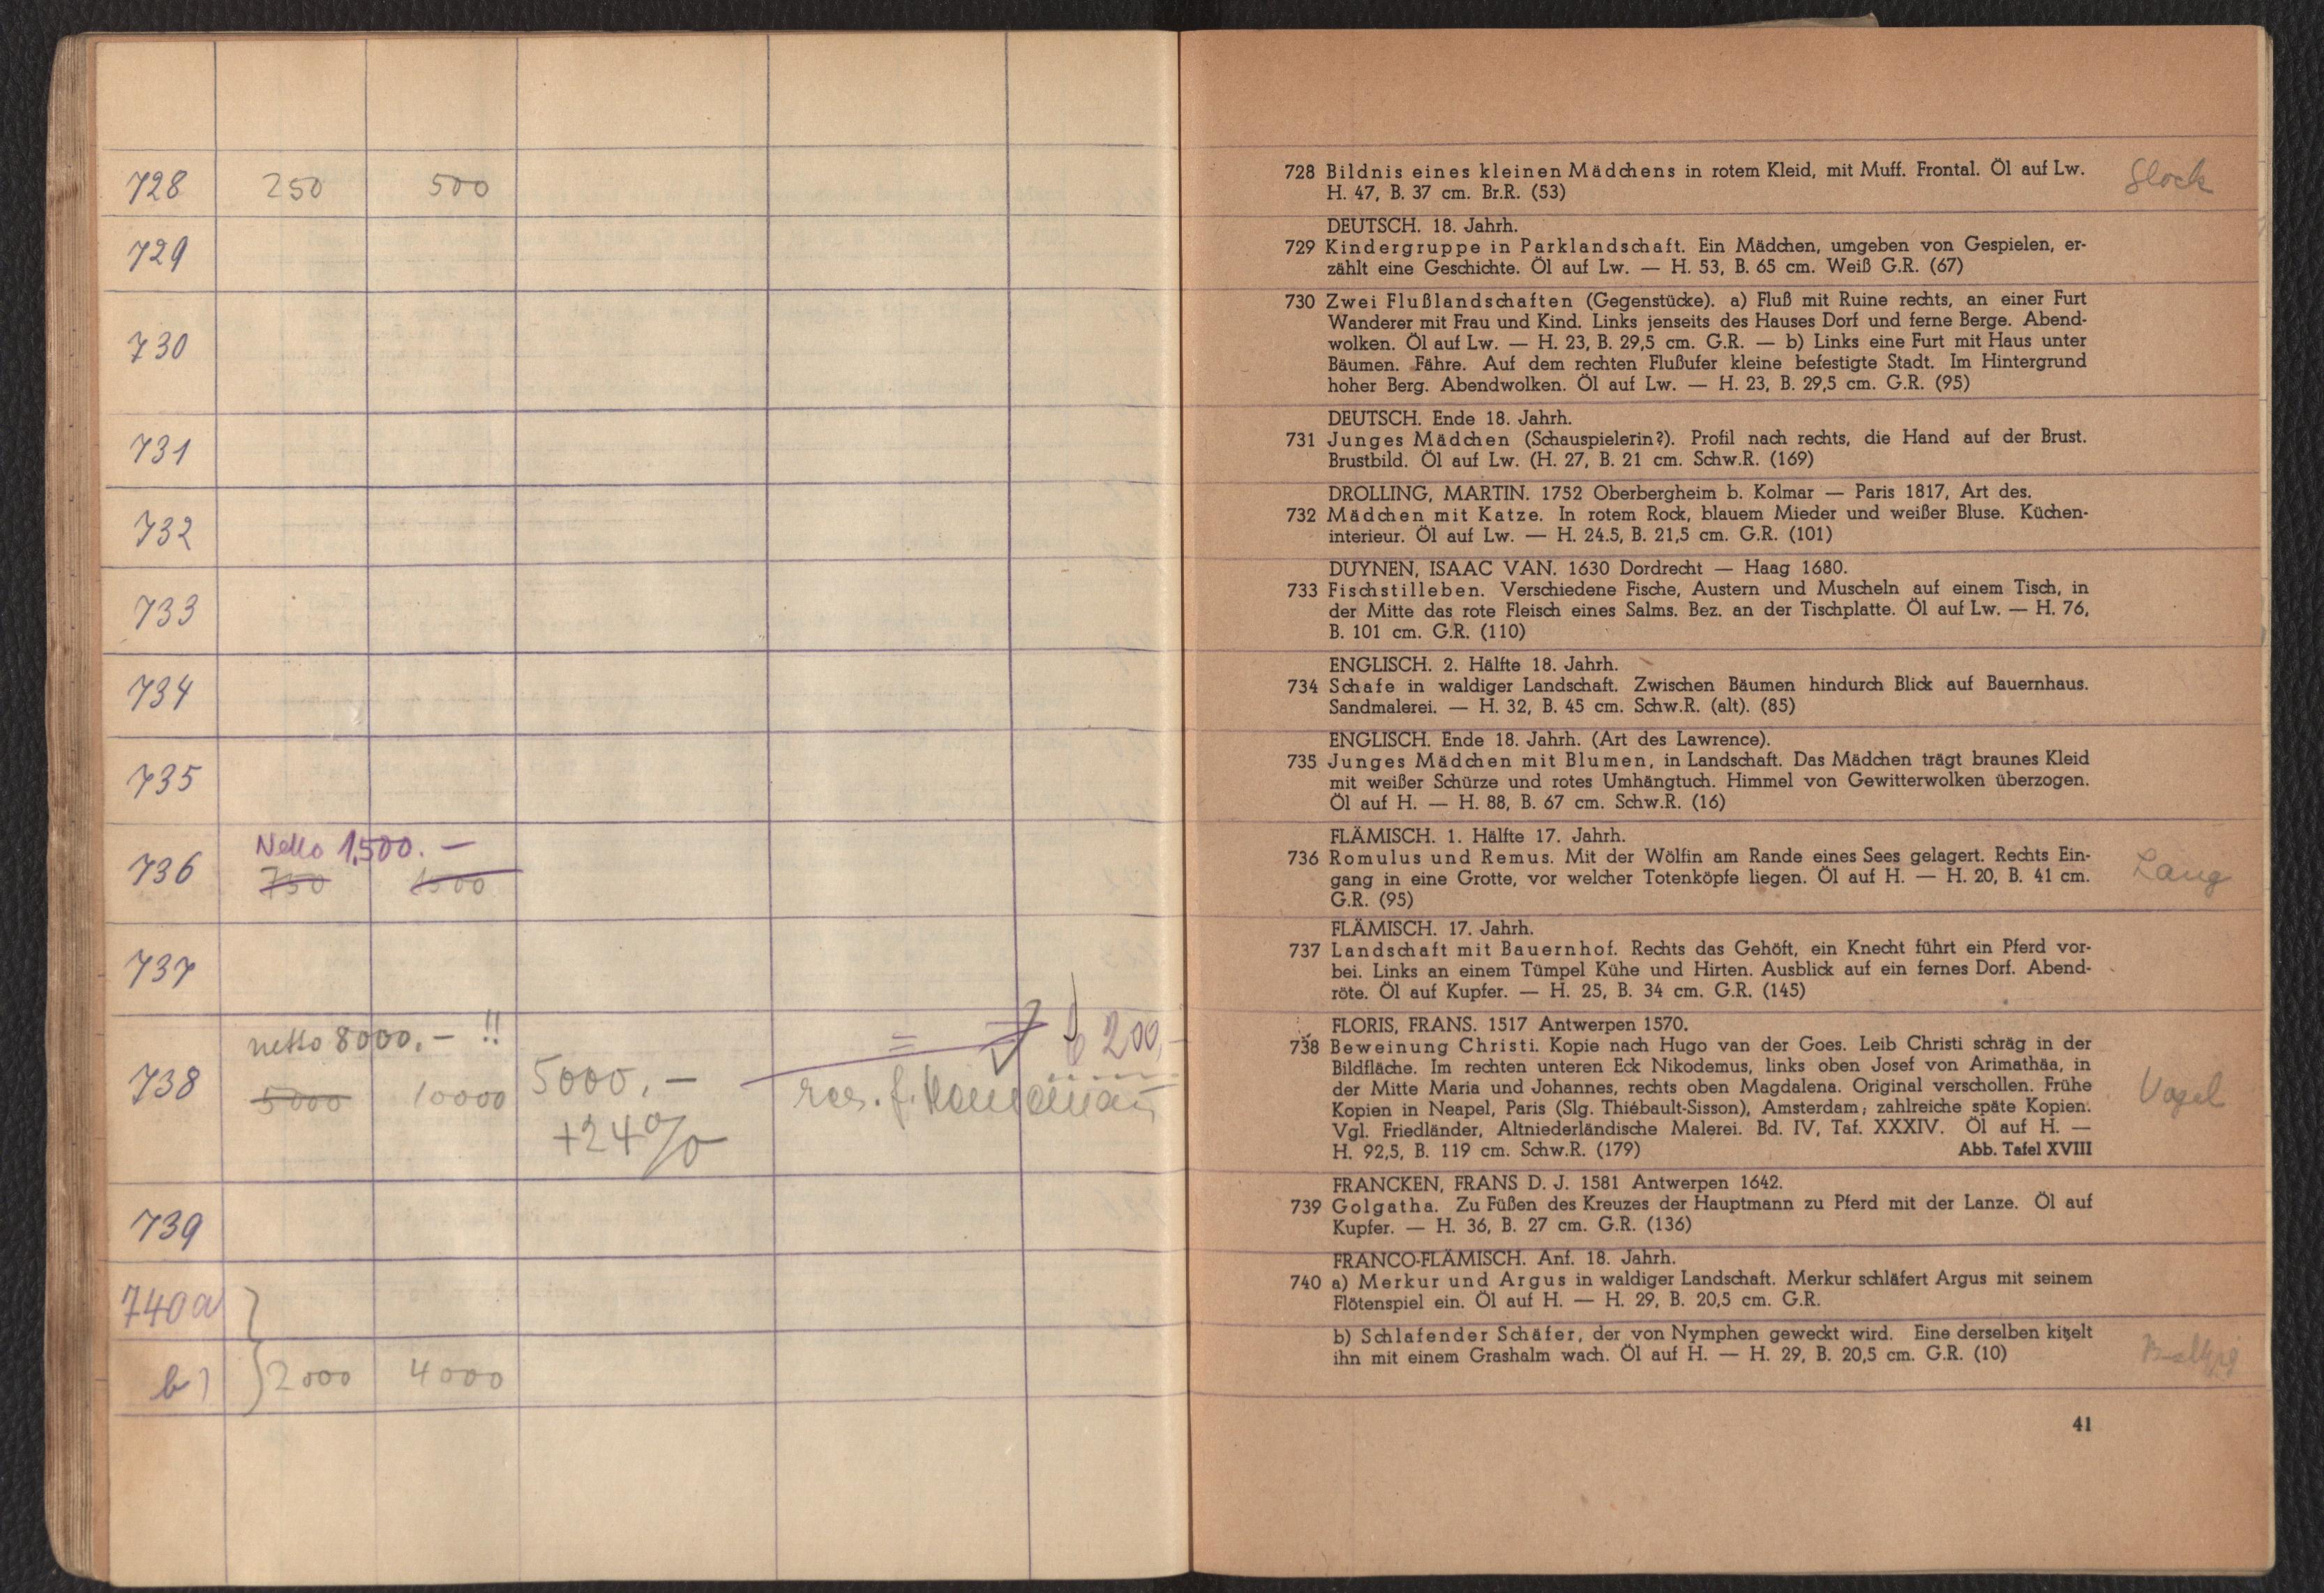 728 250 500
729
730
731
732
733
734
735
Netto 1,500.—
736 750 1500
737
netto 8000.— !!
= 6200,-
738 5000 10000 5000.—
res. f.
+24%
739
740a
b) 2000 4000
728 Bildnis eines kleinen Mädchens in rotem Kleid, mit Muff. Frontal. Öl auf Lw.
H. 47, B. 37 cm. Br.R. (53)
Glock
DEUTSCH. 18. Jahrh.
729 Kindergruppe in Parklandschaft. Ein Mädchen, umgeben von Gespielen, er-
zählt eine Geschichte. Öl auf Lw. — H. 53, B. 65 cm. Weiß G.R. (67)
730 Zwei Flußlandschaften (Gegenstücke). a) Fluß mit Ruine rechts, an einer Furt
Wanderer mit Frau und Kind. Links jenseits des Hauses Dorf und ferne Berge. Abend-
wolken. Öl auf Lw. — H. 23, B. 29,5 cm. G.R. — b) Links eine Furt mit Haus unter
Bäumen. Fähre. Auf dem rechten Flußufer kleine befestigte Stadt. Im Hintergrund
hoher Berg. Abendwolken. Öl auf Lw. — H. 23, B. 29,5 cm. G.R. (95)
DEUTSCH. Ende 18. Jahrh.
731 Junges Mädchen (Schauspielerin?). Profil nach rechts, die Hand auf der Brust.
Brustbild. Öl auf Lw. (H. 27, B. 21 cm. Schw.R. (169)
DROLLING, MARTIN. 1752 Oberbergheim b. Kolmar — Paris 1817, Art des.
732 Mädchen mit Katze. In rotem Rock, blauem Mieder und weißer Bluse. Küchen-
interieur. Öl auf Lw. — H. 24.5, B. 21,5 cm. G.R. (101)
DUYNEN, ISAAC VAN. 1630 Dordrecht — Haag 1680.
733 Fischstilleben. Verschiedene Fische, Austern und Muscheln auf einem Tisch, in
der Mitte das rote Fleisch eines Salms. Bez. an der Tischplatte. Öl auf Lw. — H. 76,
B. 101 cm. G.R. (110)
ENGLISCH. 2. Hälfte 18. Jahrh.
734 Schafe in waldiger Landschaft. Zwischen Bäumen hindurch Blick auf Bauernhaus.
Sandmalerei. — H. 32, B. 45 cm. Schw.R. (alt). (85)
ENGLISCH. Ende 18. Jahrh. (Art des Lawrence).
735 Junges Mädchen mit Blumen, in Landschaft. Das Mädchen trägt braunes Kleid
mit weißer Schürze und rotes Umhängtuch. Himmel von Gewitterwolken überzogen.
Öl auf H. — H. 88, B. 67 cm. Schw.R. (16)
FLÄMISCH. 1. Hälfte 17. Jahrh.
736 Romulus und Remus. Mit der Wölfin am Rande eines Sees gelagert. Rechts Ein-
gang in eine Grotte, vor welcher Totenköpfe liegen. Öl auf H. — H. 20, B. 41 cm.
G.R. (95)
Lang
FLÄMISCH. 17. Jahrh.
737 Landschaft mit Bauernhof. Rechts das Gehöft, ein Knecht führt ein Pferd vor-
bei. Links an einem Tümpel Kühe und Hirten. Ausblick auf ein fernes Dorf. Abend-
röte. Öl auf Kupfer. — H. 25, B. 34 cm. G.R. (145)
FLORIS, FRANS. 1517 Antwerpen 1570.
738 Beweinung Christi. Kopie nach Hugo van der Goes. Leib Christi schräg in der
Bildfläche. Im rechten unteren Eck Nikodemus, links oben Josef von Arimathäa, in
der Mitte Maria und Johannes, rechts oben Magdalena. Original verschollen. Frühe
Kopien in Neapel, Paris (Slg. Thiébault-Sisson), Amsterdam; zahlreiche späte Kopien.
Vgl. Friedländer, Altniederländische Malerei. Bd. IV, Taf. XXXIV. Öl auf H. —
H. 92,5, B. 119 cm. Schw.R. (179) Abb. Tafel XVIII
Vogel
FRANCKEN, FRANS D. J. 1581 Antwerpen 1642.
739 Golgatha. Zu Füßen des Kreuzes der Hauptmann zu Pferd mit der Lanze. Öl auf
Kupfer. — H. 36, B. 27 cm. G.R. (136)
FRANCO-FLÄMISCH. Anf. 18. Jahrh.
740 a) Merkur und Argus in waldiger Landschaft. Merkur schläfert Argus mit seinem
Flötenspiel ein. Öl auf H. — H. 29, B. 20,5 cm. G.R.
b) Schlafender Schäfer, der von Nymphen geweckt wird. Eine derselben kitzelt
ihn mit einem Grashalm wach. Öl auf H. — H. 29, B. 20,5 cm. G.R. (10)
41